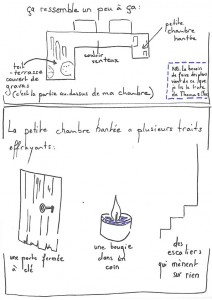 ça ressemble un peu à ça:
petite
chambre
hantée
couloir
venteux
toit-
terrasse
couvert de
graviers
(c'est la partie au-dessus de ma chambre)
NB: le besoin
de faire des plans
vient de ce que
je lis le traité
de Thomas
La petite chambre hantée a plusieurs traits
effrayants:
une porte fermée
à clé
une bougie
dans un
coin
des
escaliers
qui mènent
sur rien